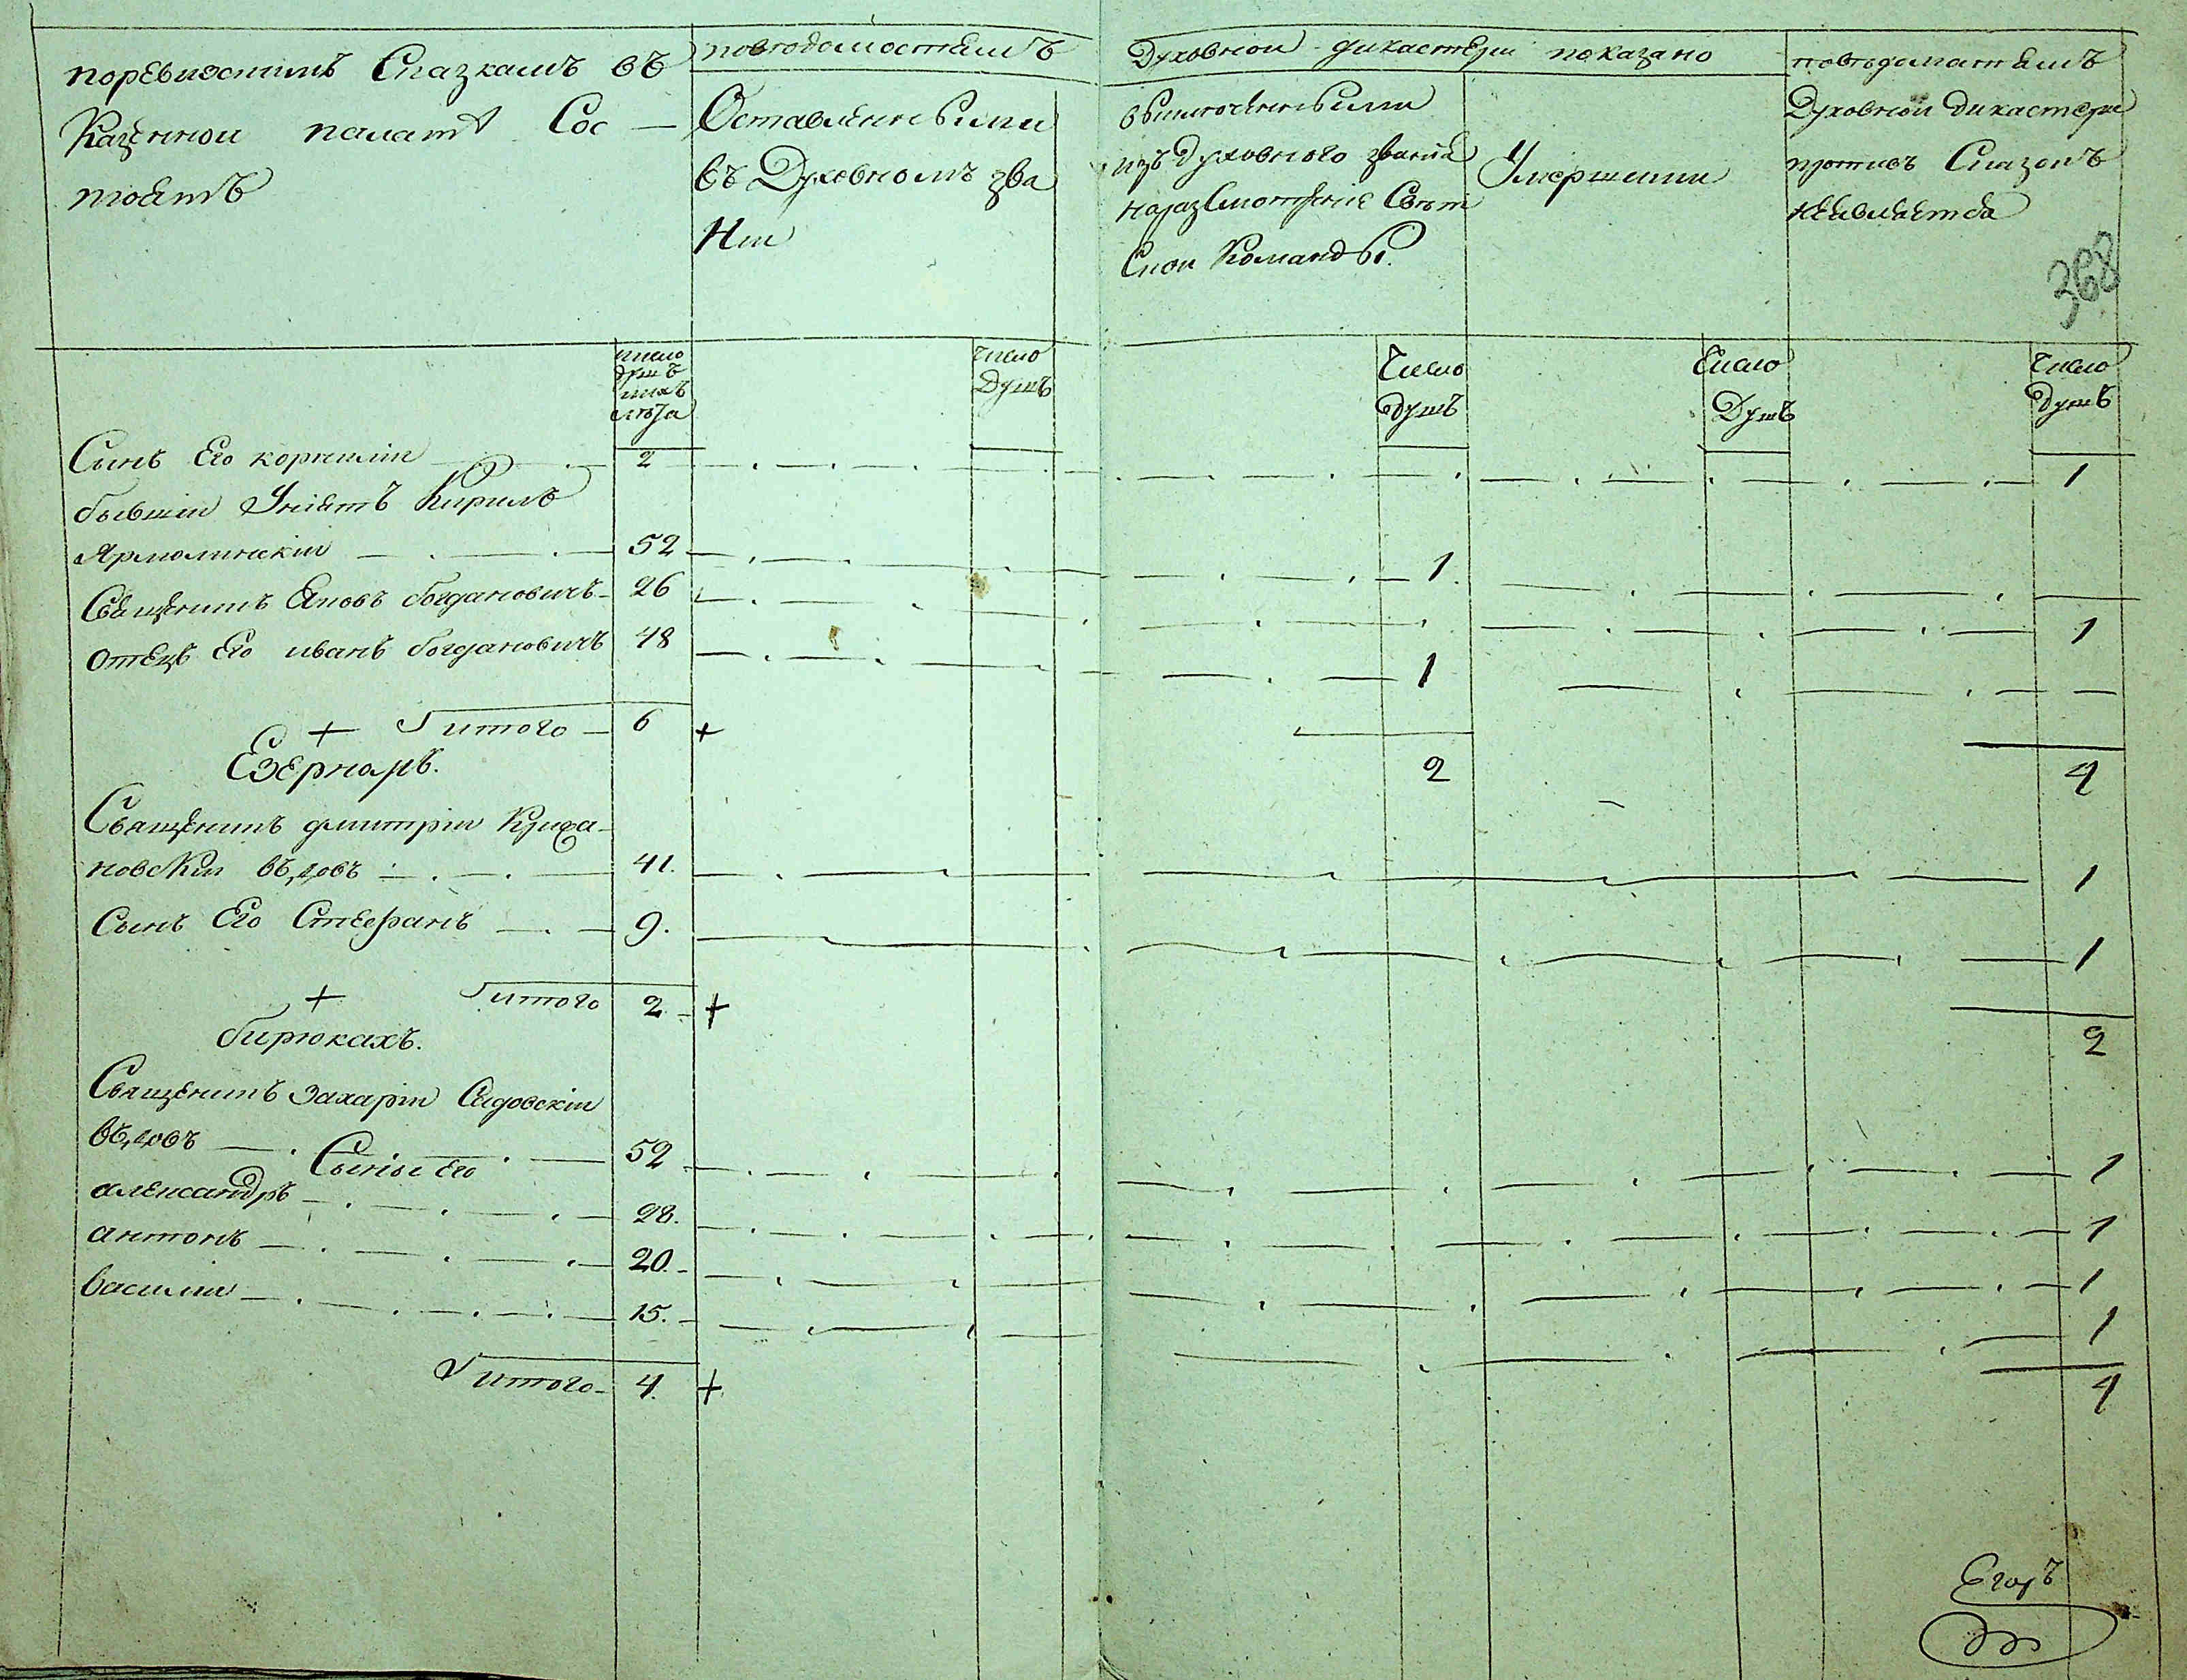 поревизскимъ Сказкамъ въ
Казенной палатѣ Сос —
тоятъ
повѣдомостямъ
Оставленными
въ Духовномъ зва
Нии
Духовной дикастерии показано
изъ духовнаго звания
наразсмотрѣние Свѣт
Ской Команды.
Умершими
повѣдомостямъ
Духовной дикастерии
противъ Сказокъ
неявляется
368
число
душъ
ихъ
лѣта
число
душъ
Число
душъ
Число
Душъ
Число
душъ
Сынъ Его корнилий 2 1
бывший Униятъ Кирилъ
Ярмолинский 52 1
Священникъ Яковъ богдановичъ 26 1
отецъ Его иванъ богдановичъ 48 1
+ итого 6 + 2 4
Езернахъ.
Священникъ дмитрий Криха
новский вдовъ 41. 1
Сынъ Его Стефанъ 9. 1
+ итого 2 + 2
бирюкахъ.
Священникъ Захарий Садовский
вдовъ 52 1
Сыны Его
александръ 28. 1
антонъ 20. 1
василий 15. 1
итого 4. + 4
Егоръ